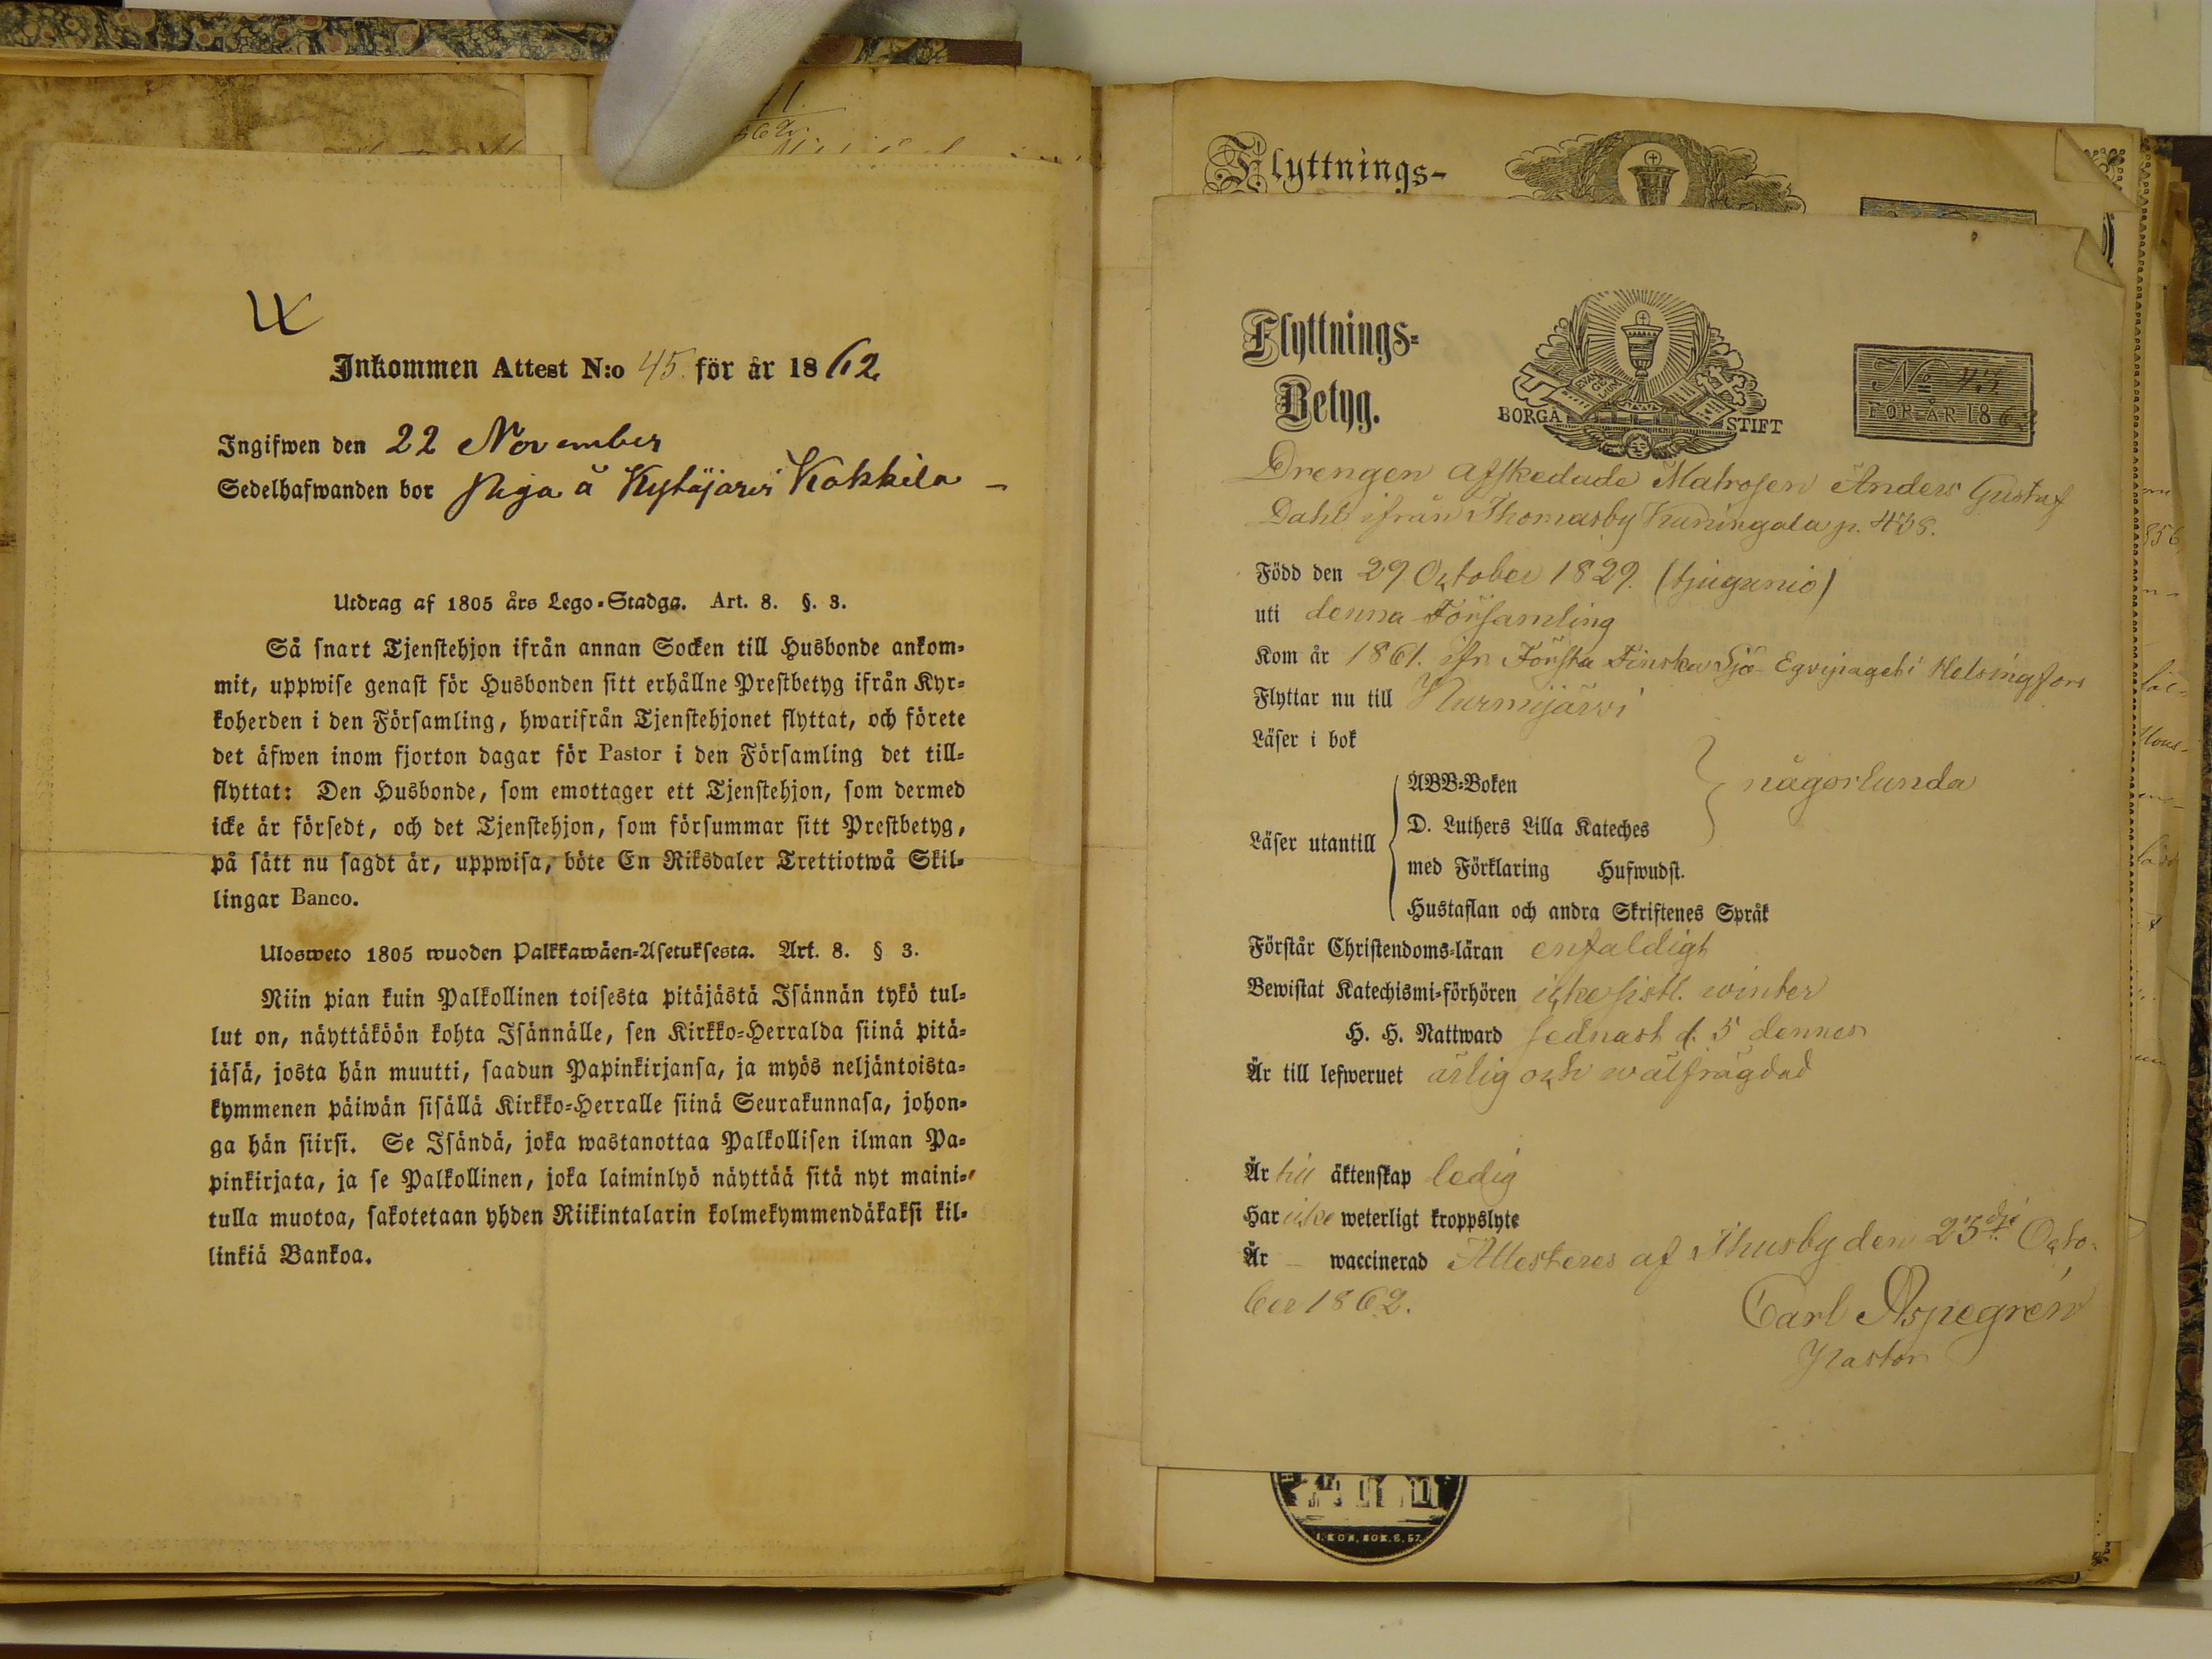 Inkommen Attest N:o 45. för år 1862.
Ingifwen den 22 November
Sedelhafwanden bor piga å Kytäjärvi Kokkila –
Utdrag af 1805 års Lego-Stadga. Art. 8. §. 3.
Så snart Tjenstehjon ifrån annan Socken till Husbonde ankom-
mit, uppwise genast för Husbonden sitt erhållne Prestbetyg ifrån Kyr-
koherden i den Församling, hwarifrån Tjenstehjonet flyttat, och förete
det äfwen inom fjorton dagar för Pastor i den Församling det till-
flyttat: Den Husbonde, som emottager ett Tjenstehjon, som dermed
icke är försedt, och det Tjenstehjon, som försummar sitt Prestbetyg,
på sätt nu sagdt är, uppwisa, böte En Riksdaler Trettiotwå Skil-
lingar Banco.
Ulosweto 1805 wuoden Palkkawäen-Asetuksesta. Art. 8. § 3.
Niin pian kuin Palkollinen toisesta pitäjästä Isännän tykö tul-
lut on, näyttäköön kohta Isännälle, sen Kirkko-Herralda siinä pitä-
jäsä, josta hän muutti, saadun Papinkirjansa, ja myös neljäntoista-
kymmenen päiwän sisällä Kirkko-Herralle siinä Seurakunnasa, johon-
ga hän siirsi. Se Isändä, joka wastanottaa Palkollisen ilman Pa-
pinkirjata, ja se Palkollinen, joka laiminlyö näyttää sitä nyt maini-
tulla muotoa, sakotetaan yhden Riikintalarin kolmekymmendäkaksi kil-
linkiä Bankoa.
Flyttnings-
Flyttnings-
Betyg.
EVAN GE LIUM
BORGÅ STIFT
No 43.
FÖR ÅR 1862
Drengen afskedade Matrosen Anders Gustaf
Dahl ifrån Thomasby p. 438.
Född den 29 October 1829. (tjugunio)
uti denna Församling
Kom år 1861. ifn Första Finska Sjö-Eqvipaget i Helsingfors
Flyttar nu till Nurmijärvi
Läser i bok
ABB-Boken någorlunda
D. Luthers Lilla Kateches
Läser utantill
med Förklaring Hufwudst.
Hustaflan och andra Skriftenes Språk
Förstår Christendoms-läran enfaldigt
Bewistat Katechismi-förhören icke sistl. winter
H. H. Nattward sednast d. 5 dennes
Är till lefweruet ärlig och wälfrägdad
Är till äktenskap ledig
Har icke weterligt kroppslyte
Är – waccinerad Attesteres af Thusby den 25dje Octo-
ber 1862.
Carl Aspegrén
Pastor